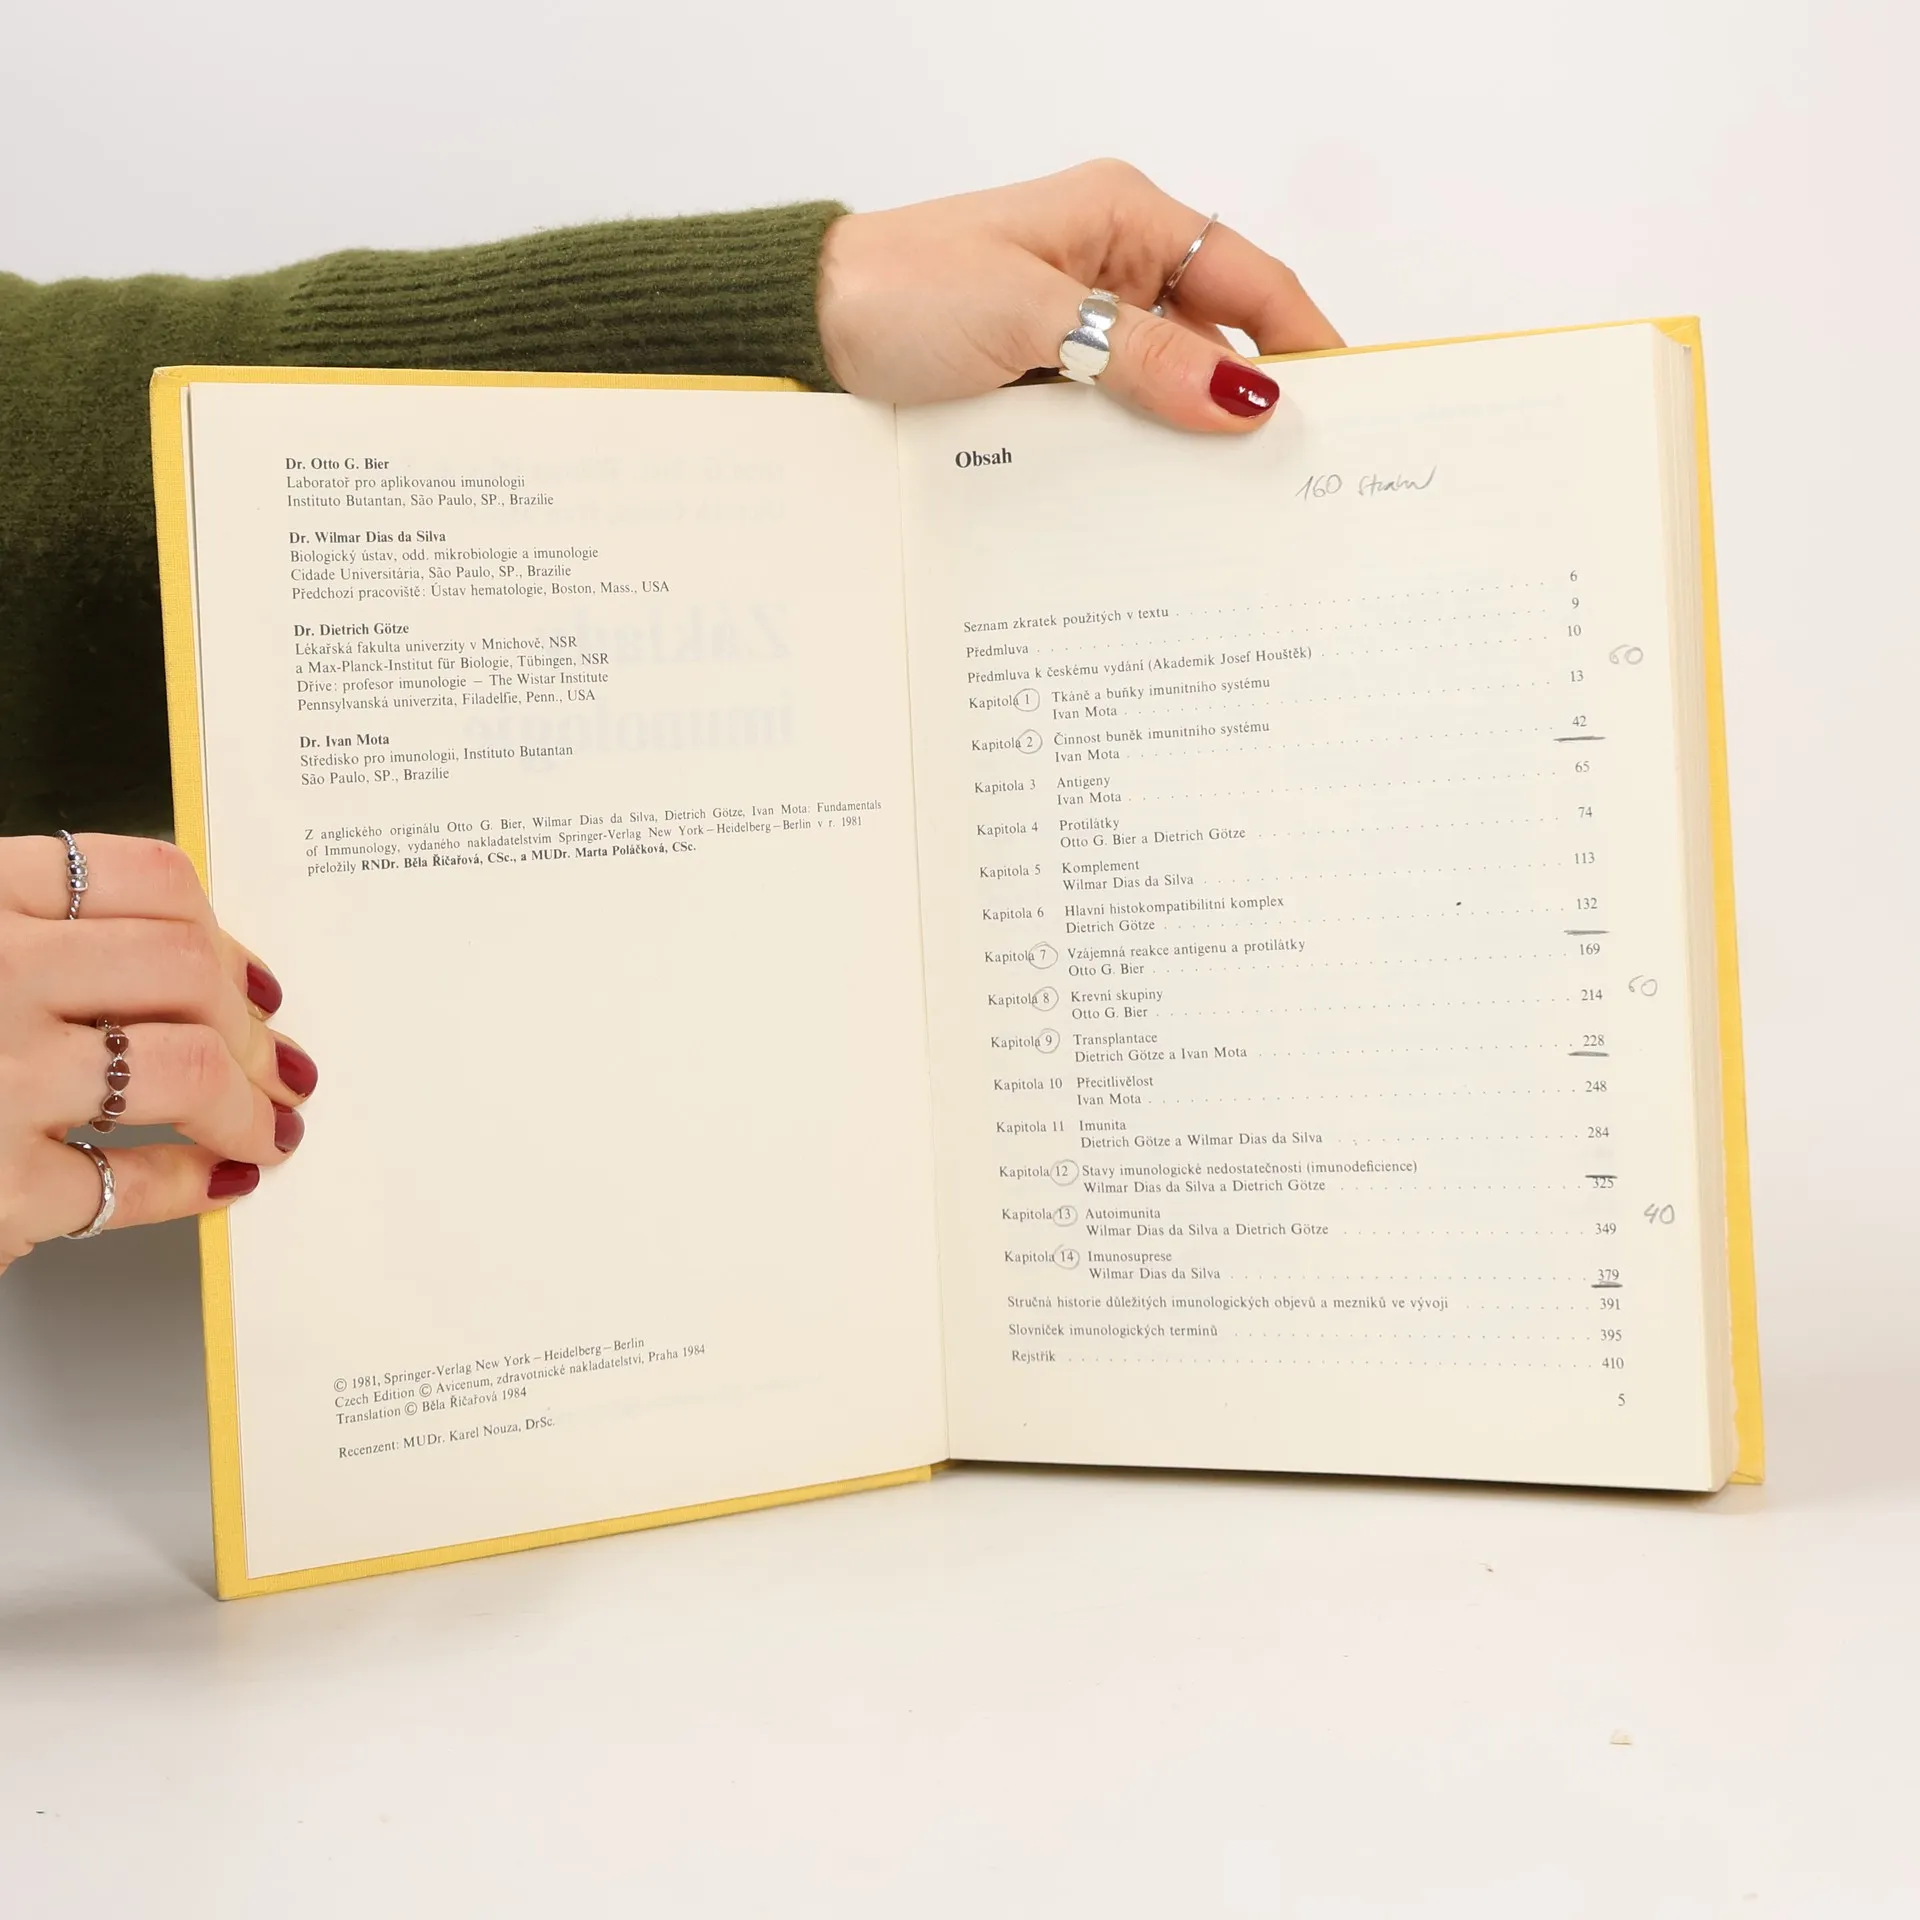 Dr. Otto G. Bier
Laboratoř pro aplikovanou imunologii
Instituto Butantan, São Paulo, SP., Brazílie
Dr. Wilmar Dias da Silva
Biologický ústav, odd. mikrobiologie a imunologie
Cidade Universitária, São Paulo, SP., Brazílie
Předchozí pracoviště: Ústav hematologie, Boston, Mass., USA
Dr. Dietrich Götze
Lékařská fakulta univerzity v Mnichově, NSR
a Max-Planck-Institut für Biologie, Tübingen, NSR
Dříve: profesor imunologie — The Wistar Institute
Pennsylvanská univerzita, Filadelfie, Penn., USA
Dr. Ivan Mota
Středisko pro imunologii, Instituto Butantan
São Paulo, SP., Brazílie
Z anglického originálu Otto G. Bier, Wilmar Dias da Silva, Dietrich Götze, Ivan Mota: Fundamentals
of Immunology, vydaného nakladatelstvím Springer-Verlag New York—Heidelberg—Berlin v r. 1981
přeložily RNDr. Běla Říčařová, CSc., a MUDr. Marta Poláčková, CSc.
© 1981, Springer-Verlag New York—Heidelberg—Berlin
Czech Edition © Avicenum, zdravotnické nakladatelství, Praha 1984
Translation © Běla Říčařová 1984
Recenzent: MUDr. Karel Nouza, DrSc.
Obsah
160 stran
Seznam zkratek použitých v textu 6
Předmluva 9
Předmluva k českému vydání (Akademik Josef Houštěk) 10
60
Kapitola 1 Tkáně a buňky imunitního systému
Ivan Mota 13
Kapitola 2 Činnost buněk imunitního systému
Ivan Mota 42
Kapitola 3 Antigeny
Ivan Mota 65
Kapitola 4 Protilátky
Otto G. Bier a Dietrich Götze 74
Kapitola 5 Komplement
Wilmar Dias da Silva 113
Kapitola 6 Hlavní histokompatibilitní komplex
Dietrich Götze 132
Kapitola 7 Vzájemná reakce antigenu a protilátky
Otto G. Bier 169
Kapitola 8 Krevní skupiny
Otto G. Bier 214
60
Kapitola 9 Transplantace
Dietrich Götze a Ivan Mota 228
Kapitola 10 Přecitlivělost
Ivan Mota 248
Kapitola 11 Imunita
Dietrich Götze a Wilmar Dias da Silva 284
Kapitola 12 Stavy imunologické nedostatečnosti (imunodeficience)
Wilmar Dias da Silva a Dietrich Götze 325
Kapitola 13 Autoimunita
Wilmar Dias da Silva a Dietrich Götze 349
40
Kapitola 14 Imunosuprese
Wilmar Dias da Silva 379
Stručná historie důležitých imunologických objevů a mezníků ve vývoji 391
Slovníček imunologických termínů 395
Rejstřík 410
5